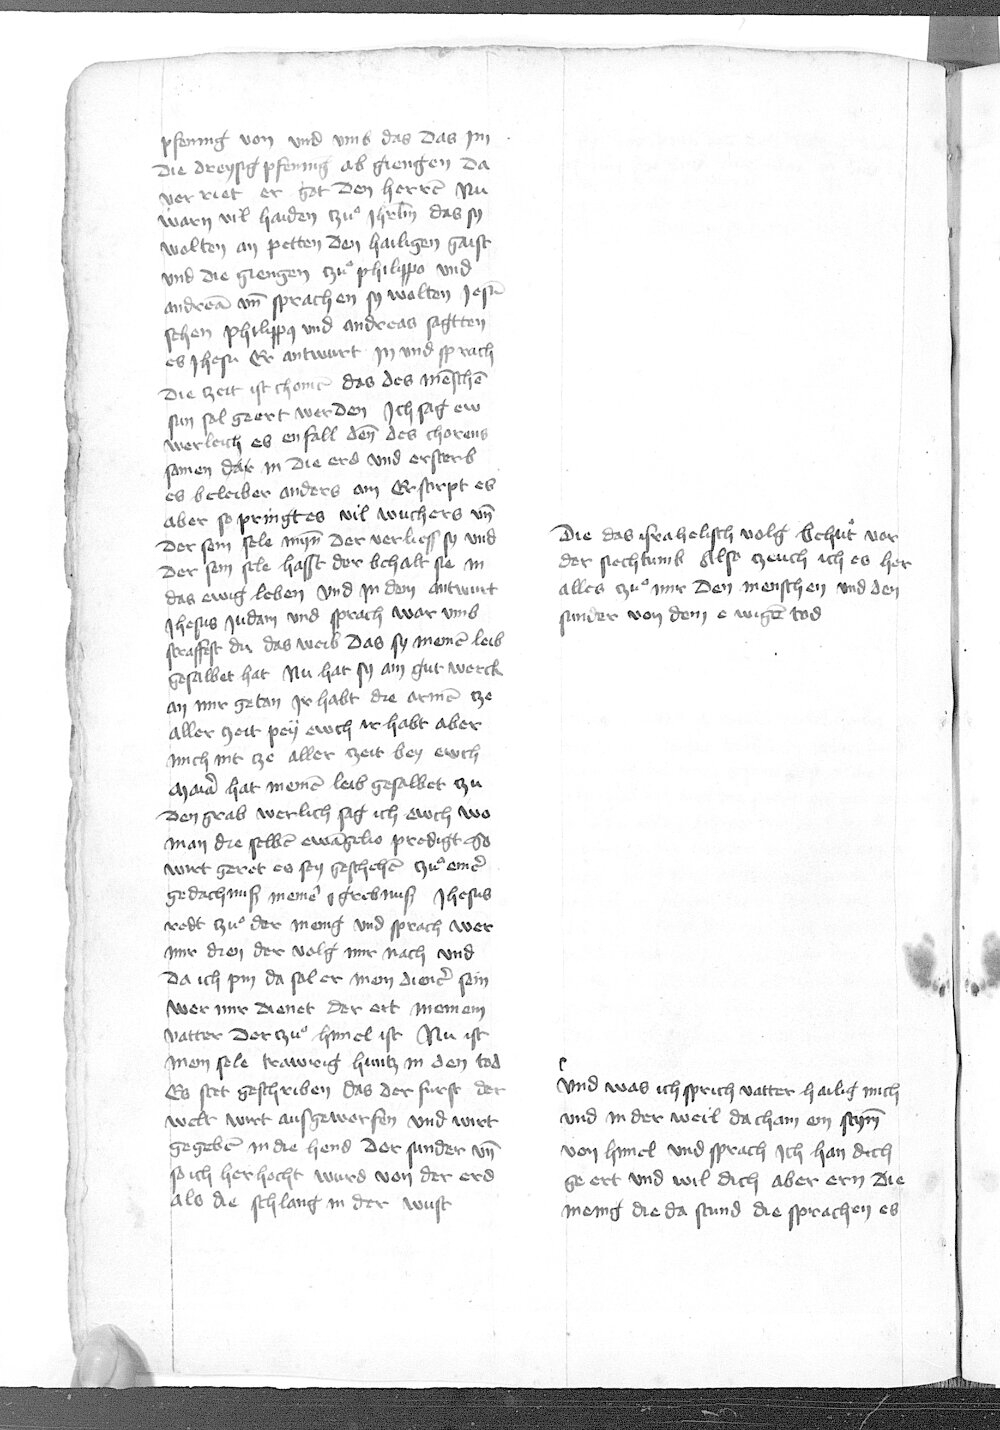 pfening von und umb das Das Im
Die dreysig pfening ab giengen Da
ver riet er got Den herrē Nu
warn vil haiden czuͦ Jhrlm̄ das sy
wolten an petten Den hailigen gaist
und die giengen czuͦ philippo und
andreā vn̄ sprachen sy wolten Jesū
sehen philippꝫ und andreas sagtten
es Jhesu Er antwurt In und sprach
Die czeit ist chomē das des mēschē
sun sol geert werden Ich sag ew
werleich es en fall den̄ des chorens
samen dar in Die erd und ersterb
es beleiber anders am Erstirpt es
aber so pringt es vil wuchers vn̄
Der sein sele myn̄ Der verliess sy und
Der sein sele hasst der behalt sie in
das ewig leben Und In dem antwurt
Jhesus Judam und sprach war umb
straffest du das weib Das sy meinē leib
gesalbet hat Nu hat sy ain gut werck
an mir getan Ir habt die armē cze
aller czeit pey ewch ir habt aber
mich nit cze aller czeit bey ewch
Maria hat meinē leib gesalbet czu
Den grab werlich sag ich ewch wo
man die selbē ewāgelio predigt So
wirt geret es sey geschehē czuͦ einer
gedachnuss meiner grebnuss Jhesus
redt czuͦ der menig und sprach wer
mir dien der volg mir nach und
Da ich pin da sol er mein diener sein
wer mir dienet der ert meinem
vatter Der czuͦ himel ist Nu ist
mein sele trawrig huntz in den tod
Es stet geschriben das Der furst der
welt wirt ausgeworfen und wirt
gegebē in die hend Der sunder vn̄
so ich her hocht wurd von der erd
als die schlang in der wust
Die das israhelisch volg behuͤt vor
der siechtumb Also czeuch ich es her
alles czuͦ mir Den menschen und den
sunder von dem e wigē tod
Und was ich sprich vatter hailig mich
und in der weil da cham ein stym̄
von himel und sprach Ich han dich
ge ert und wil dich aber ern Die
menig die da stund die sprachen es